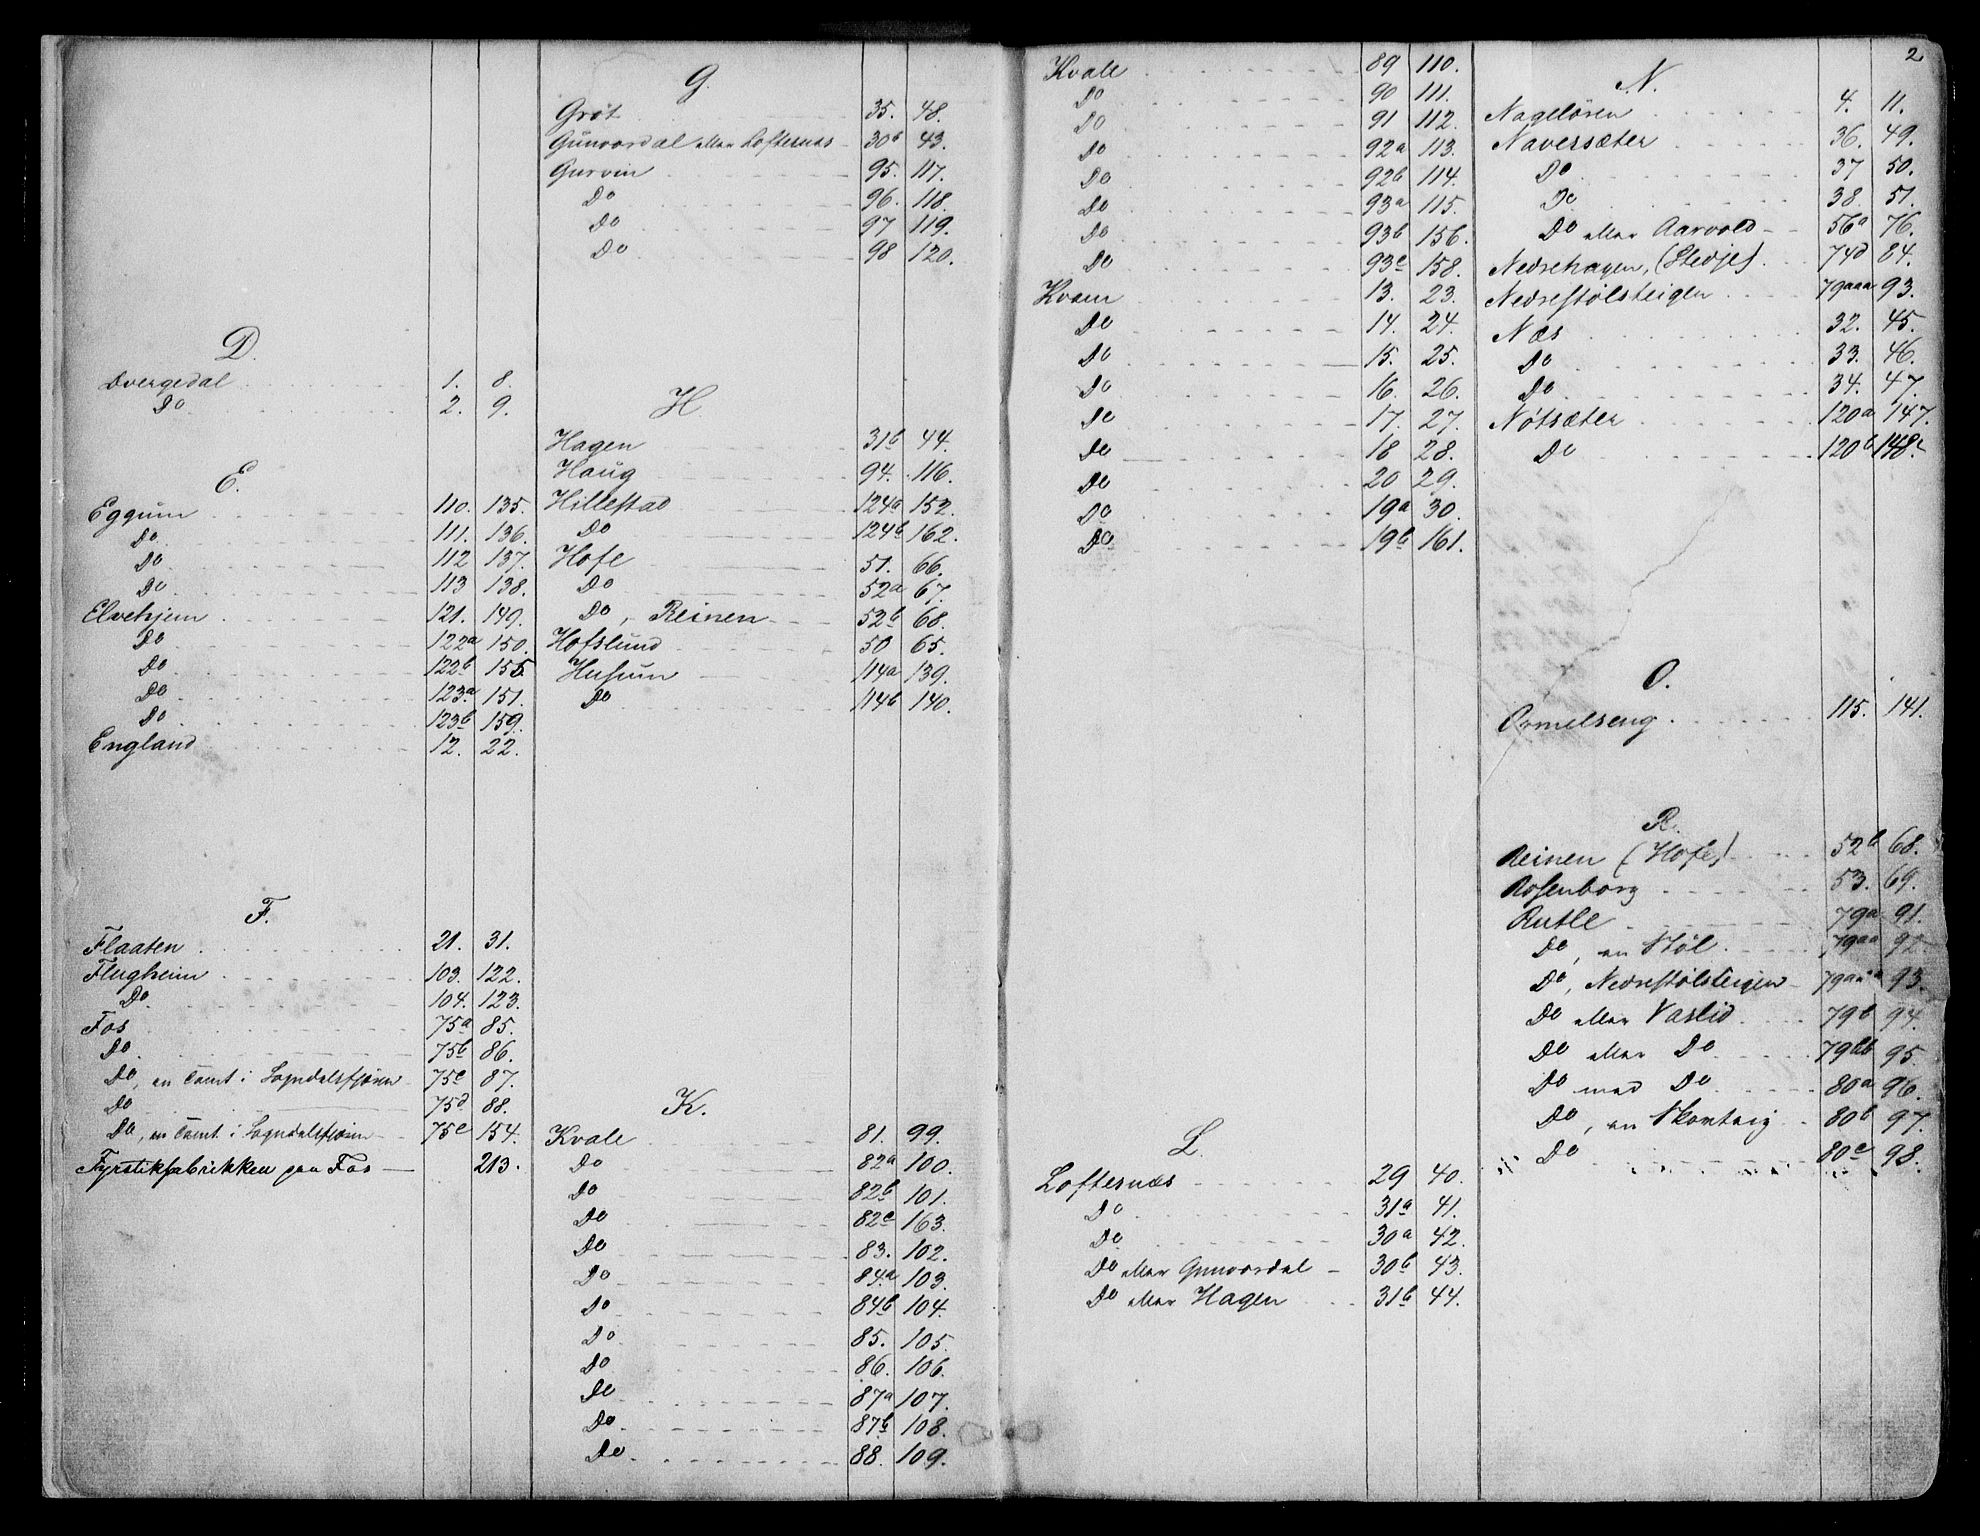 D.
Dvergedal 1. 8.
Do 2. 9.
E.
Eggum 110. 135.
Do 111. 136.
Do 112 137.
Do 113 138.
Elvehjem 121. 149.
Do 122a 150.
Do 122b 155
Do 123a 151.
Do 123b 159.
England 12. 22.
F.
Flaaten 21. 31.
Flugheim 103. 122.
Do 104. 123.
Fos 75a 85.
Do 75b 86.
Do, en Tomt i Sogndalsfjøren 75c 87.
Do 75d 88.
Do, en Tomt i Sogndalsfjøren 75e 154.
Fyrstikfabrikken paa Fos 213.
G.
Grøt 35. 48.
Gunvordal eller Loftesnæs 30b 43.
Gurvin 95. 117.
Do 96. 118.
Do 97 119.
Do 98 120.
H
Hagen 31b 44.
Haug 94. 116.
Hillestad 124a 152.
Do 124b 162.
Hofe 51. 66.
Do 52a 67.
Do, Reinen 52b 68.
Hofslund 50 65.
Husum 114a 139.
Do 114b 140.
K.
Kvale 81. 99.
Do 82a 100.
Do 82b 101.
Do 82c 163.
Do 83. 102.
Do 84a 103.
Do 84b 104.
Do 85. 105.
Do 86. 106.
Do 87a 107.
Do 87b 108.
Do 88. 109.
Kvale 89 110.
Do 90 111.
Do 91 112.
Do 92a 113.
Do 92b 114.
Do 93a 115.
Do 93b 156.
Do 93c 158.
Kvam 13. 23.
Do 14. 24.
Do 15. 25.
Do 16. 26.
Do 17. 27.
Do 18 28.
Do 20 29.
Do 19a 30.
Do 19b 161.
L.
Loftesnæs 29 40.
Do 31a 41.
Do 30a 42.
Do eller Gunvordal 30b 43.
Do eller Hagen 31b 44.
2
N.
Nageløren 4. 11.
Naversæter 36. 49.
Do 37 50.
Do 38. 51.
Do eller Aarvold 56a 76.
Nedrehagen, (Stedje) 74d 84.
Nedrestølsteigen 79aaa 93.
Næs 32. 45.
Do 33. 46.
Do 34. 47.
Nøtsæter 120a 147.
Do 120b 148.
O.
Ormelseng 115. 141.
R.
Reinen (Hofe) 52b 68.
Rosenborg 53. 69.
Rutle 79a 91.
Do, en Støl 79aa 92
Do, Nedrestølsteigen 79aaa 93.
Do eller Vaslid 79b 94.
Do eller Do 79bb 95.
Do med Do 80a 96.
Do, en Skovteig 80b 97.
Do 80c 98.